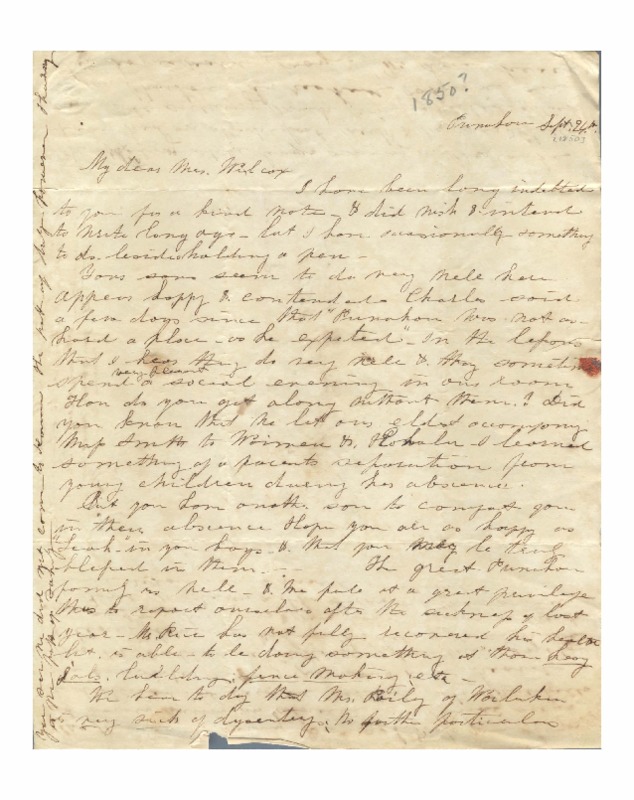 1850?
Punahou Sept. 24th.
[1850?]
My dear Mrs. Wilcox
I have been long indebted
to you for a kind note - & did wish & intend
to write long ago - but I have occasionally something
to do beside holding a pen -
Your sons seem to do very well here
appear happy & contented. Charles said
a few days since that "Punahou was not as
hard a place - as he expected" - In the lessons
that I hear they do very well & they sometimes
spend a very pleasant social evening in our room
How do you get along without them? Did
you know that we let our eldest accompany
Miss Smith to Waimea & Kohala - I learned
something of a parents separation from
young children during her absence.
But you have another son to comfort you
in their absence Hope you are as happy as
"Leah" in your boys - & that you may be truly
blessed in them. -- The great Punahou
family is well - & we feel it a great privilege
thus to report ourselves after the sickness of last
year - Mr. Rice has not fully recovered his health
but is able to be doing something at those heavy
Jobs, building, fence making etc -
We hear to day that Mr. of Wailuku
is very sick of dysentery, No further particulars
You see we did not come to